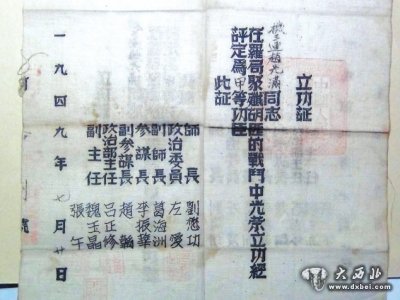 立功証
同志
在羅局聚殲胡匪的戰鬥中光荣立功經
評定為甲等功臣
此証
師長 劉懋功
政治委員 左愛
副師長 葛海洲
參謀長 李振華
副參謀長 趙
政治部主任 呂正修
副主任 魏玉晶
張午
一九四九年七月廿日
大西北
www.dxbei.com